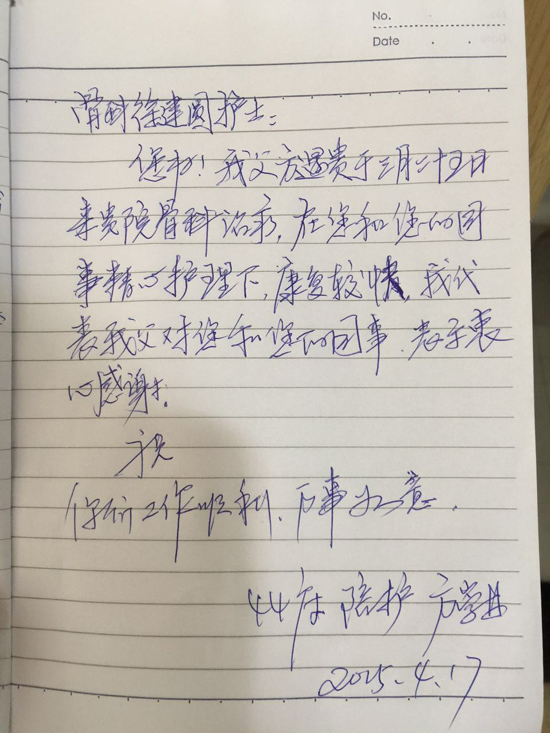 No.
Date . .
骨科徐建圆护士：
您好！我父方遇贵于三月二十五日
来贵院骨科治疗，在您和您的同
事精心护理下，康复较快，我代
表我父对您和您的同事，表示衷
心感谢！
祝
你们工作顺利、万事如意．
44床 陪护 方学
2015.4.17